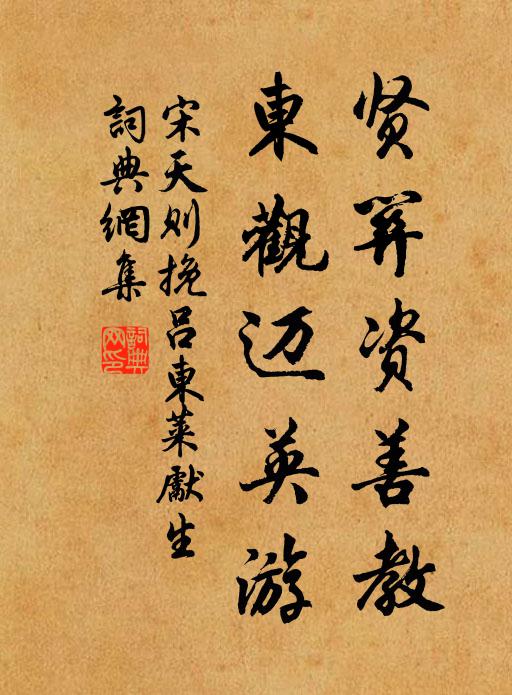 贤関资善教
東觀迈英游
宋天则挽吕東莱獻生
詞典網集
詞典网印